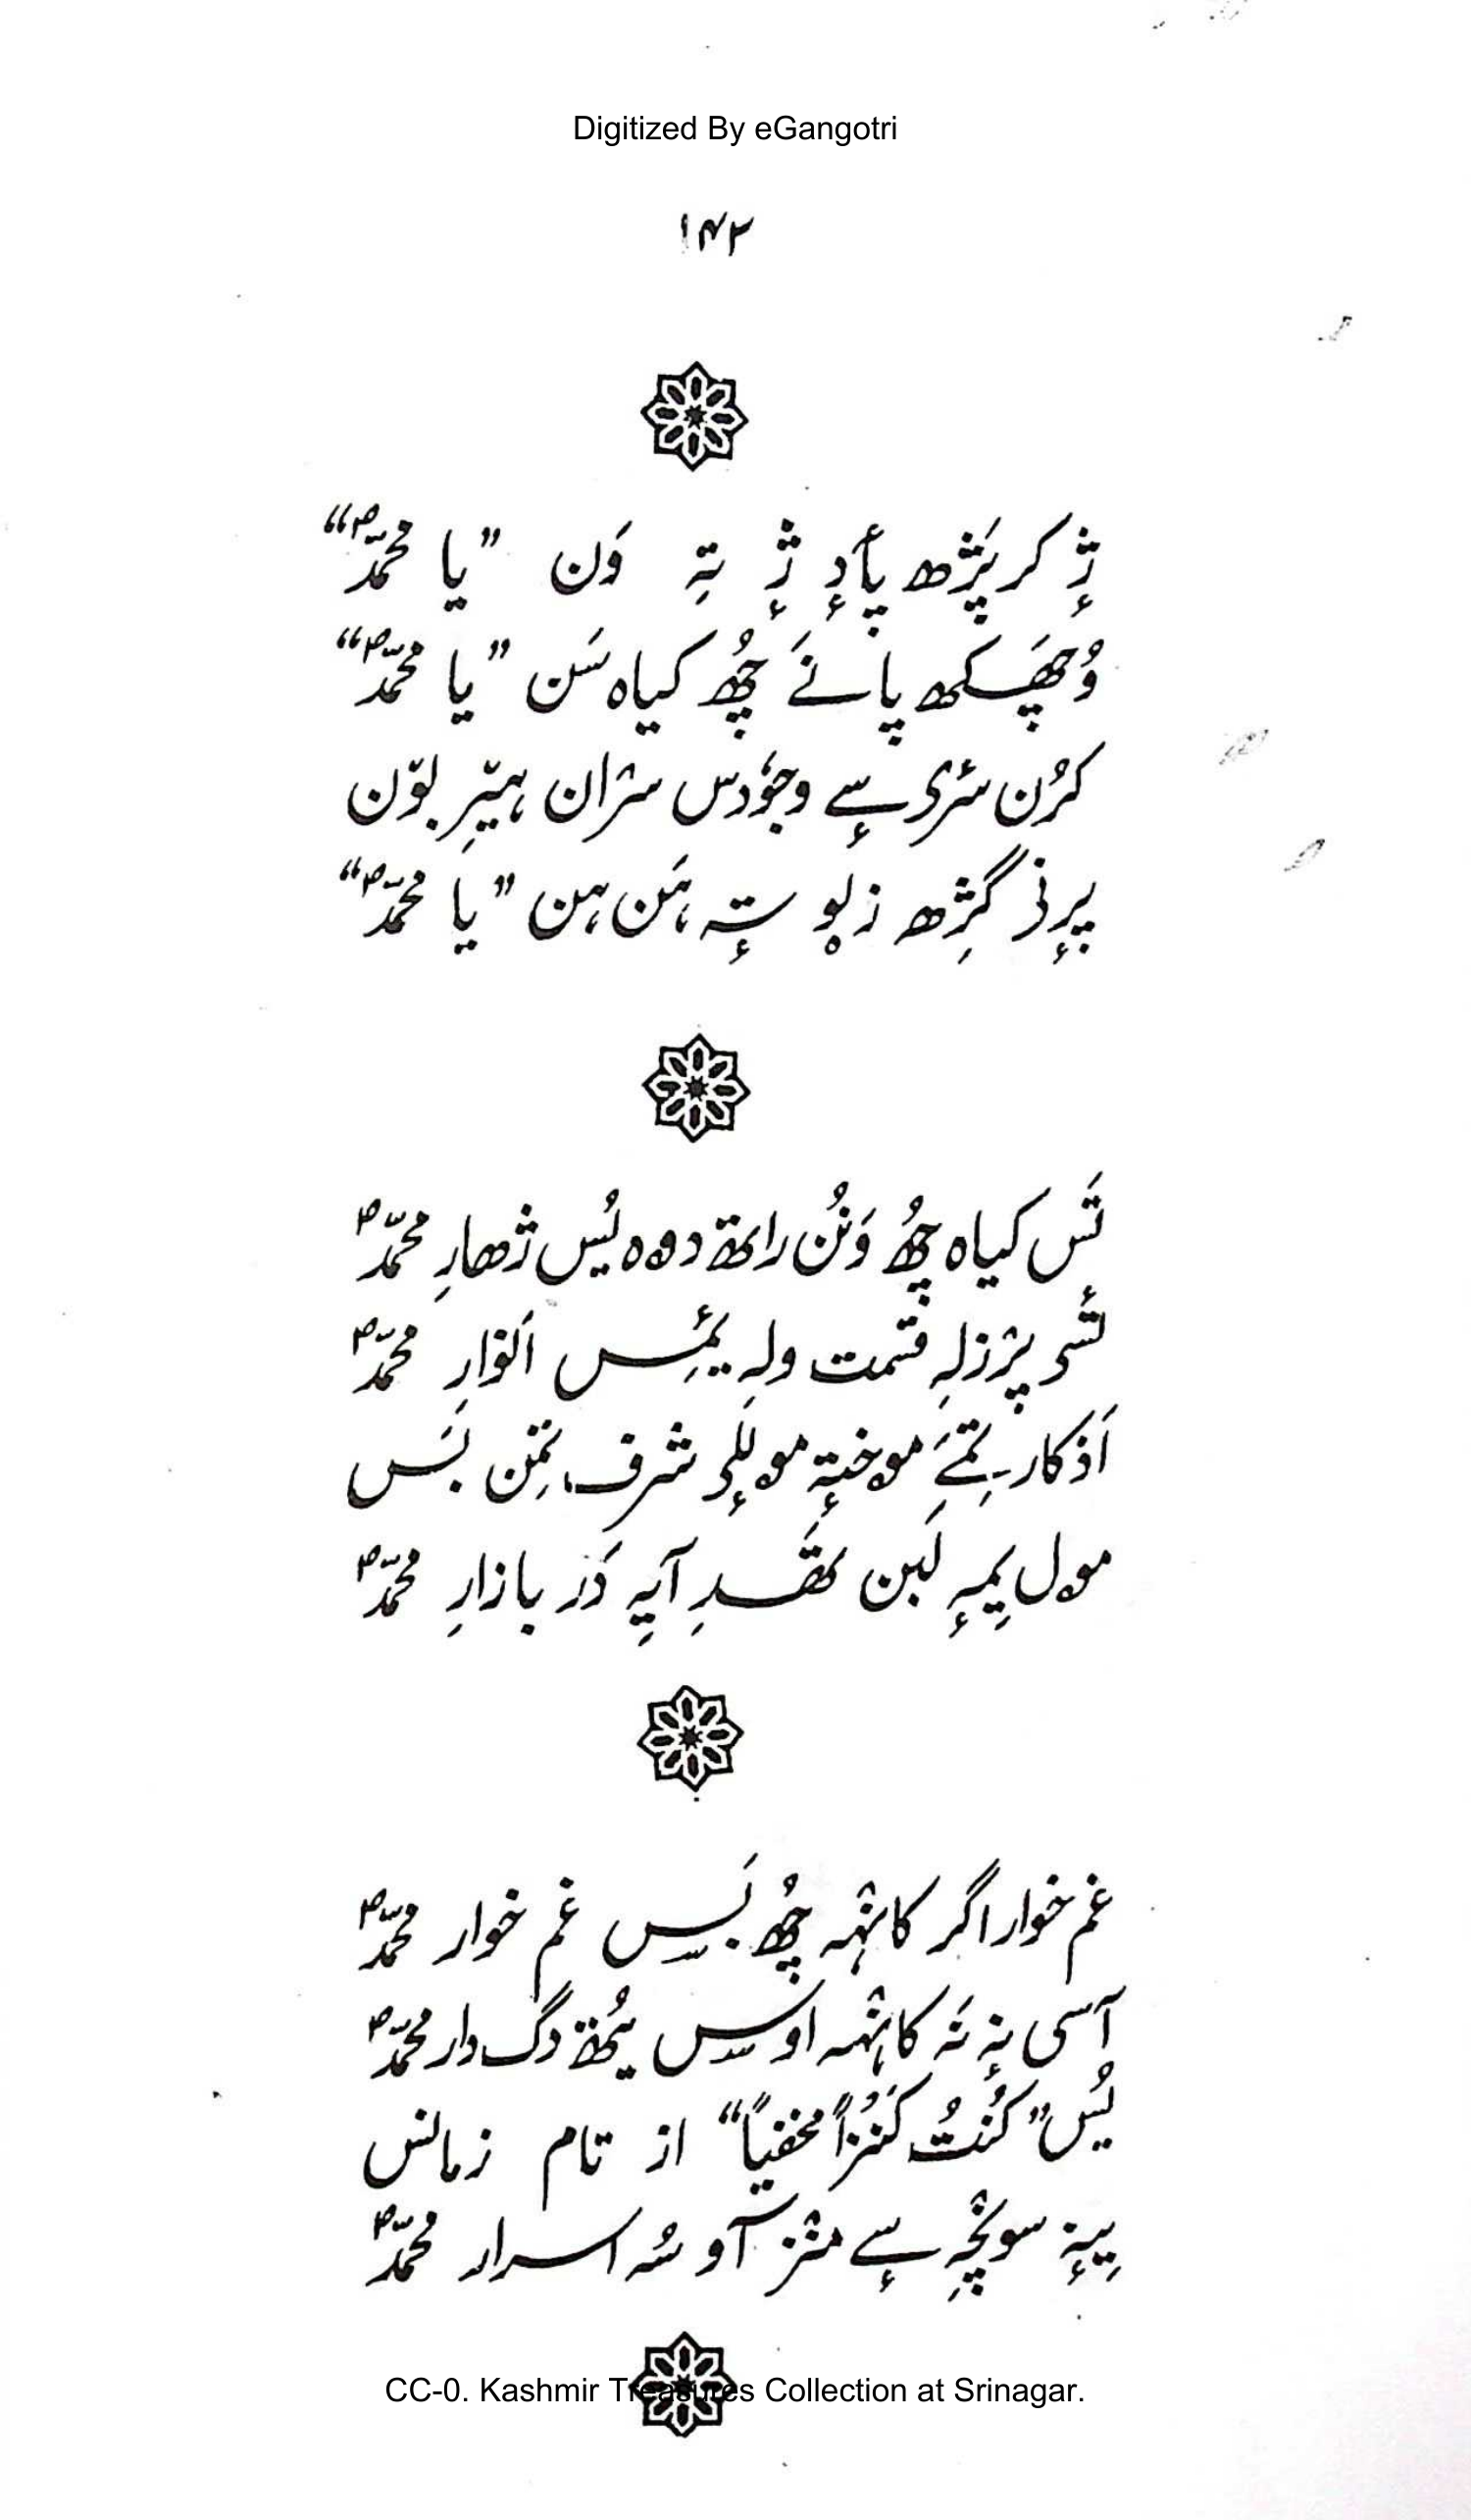 Digitized By eGangotri
۱۴۲
ژٕ کر پَژھ پأدٕ ژٕ تہِ وَن ”یا محمّدؐ“
وُچھَکھ پانَے چُھ کیاہ سَن ”یا محمّدؐ“
کرُن سٔری سٕے وجوٗدس شران ہیتِر بوٚن
پرٕنۍ گژِھ زٕلو تہٕ ہَن ہن ”یا محمّدؐ“
تَس کیاہ چُھ وَنُن راتھ دوہ یُس ژھارِ محمّدؐ
تٔسۍ پرٛزلہِ قسمت ولہِ یمِٔس انوارِ محمّدؐ
اَذکار تِمَے موختہٕ مولٕلۍ شرف تِمَن بَس
مول یِمہٕ لَبن نقدِ آیہِ دَر بازارِ محمّدؐ
غم خوار اگر کانٛہہ چُھ بَسیس غم خوار محمّدؐ
آسی نہٕ نَہ کانٛہہ اوسس یُتھ دگ دار محمّدؐ
یُس ”کُنتُ کَنزاً مخفیاً“ از تام زمانس
پیٚنہٕ سونٛچہِ سٕے منٛز آو سُہ اسرار محمّدؐ
CC-0. Kashmir Treasures Collection at Srinagar.